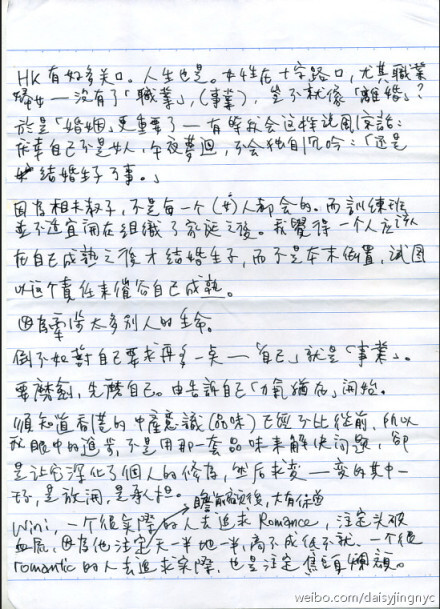 HK有好多关口。人生也是。女性在十字路口，尤其職業
婦女—没有了「職業」，(事業)，豈不就像「離婚」？
於是「婚姻」更重要了—有時我会这样說風凉話：
在幸自己不是女人，午夜夢迴，不会独自沉吟：「还是
結婚生子了事。」
因為相夫教子，不是每一个(女)人都会的。而訓練班
並不適宜開在組織了家庭之後。我覺得一个人应該
在自己成熟之後才結婚生子，而不是本末倒置，試图
以这个責任来催谷自己成熟。
因為牽涉太多别人的生命。
倒不如對自己要求再多一点—「自己」就是「事業」。
要磨劍，先磨自己。由告訴自己「力氣猶在」開始。
須知道香港的中產意識(品味)已經不比從前，所以
我眼中的進步，不是用那一套品味来解决问题，卻
是让它深化了個人的修為，然后求变—变的其中一
环，是放開，是承担。
瞻前顧後，大有保留
Wini，一个很实際的人去追求Romance，注定头破
血流，因為他注定一半地一半，高不成低不就。一个很
romantic的人去追求实際，也是注定焦頭爛額。
weibo.com/daisyjingnyc